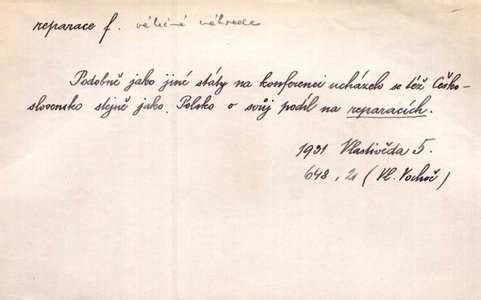 reparace f. válečné náhrady
Podobně jako jiné státy na konferenci ucházelo se též Česko-
slovensko stejně jako Polsko o svůj podíl na reparacích.
1931 Vlastivěda 5.
648, 21 (Vl. Vochoč)